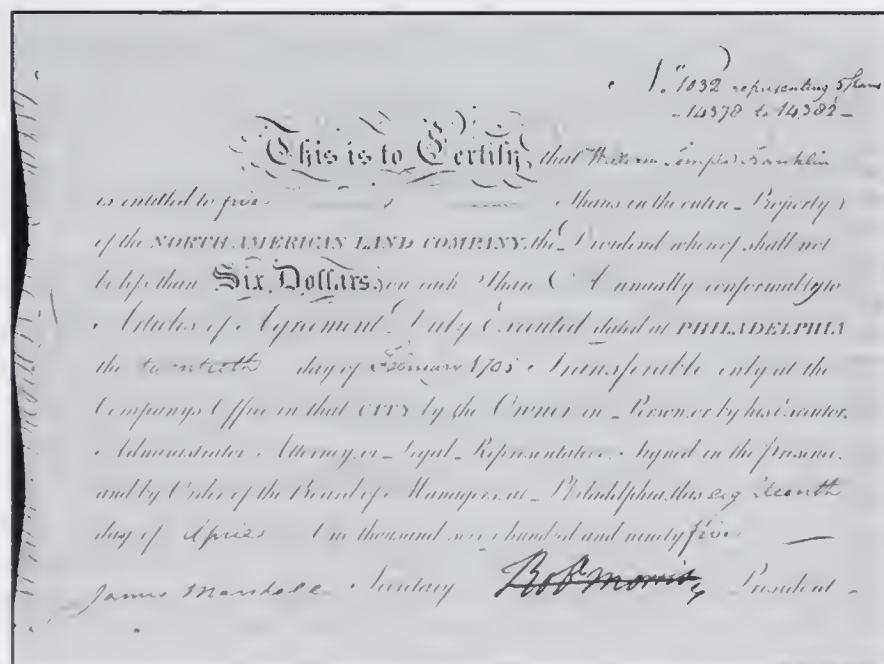 No. 1032 representing 5 Shares
14378 to 14382
This is to Certify, that William Temple Franklin
is entitled to five Shares in the entire Property
of the NORTH AMERICAN LAND COMPANY, the Dividend whereof shall not
be less than Six Dollars on each Share annually conformably to
Articles of Agreement Duly Executed dated at PHILADELPHIA
the twentieth day of February 1795 Transferable only at the
Companys Office in that CITY by the Owner in Person, or by his Executor,
Administrator, Attorney, or Legal Representative Signed in the presence
and by Order of the Board of Managers, at Philadelphia, this eighteenth
day of April One thousand seven hundred and ninety five
James Marshall Secretary Robt Morris President